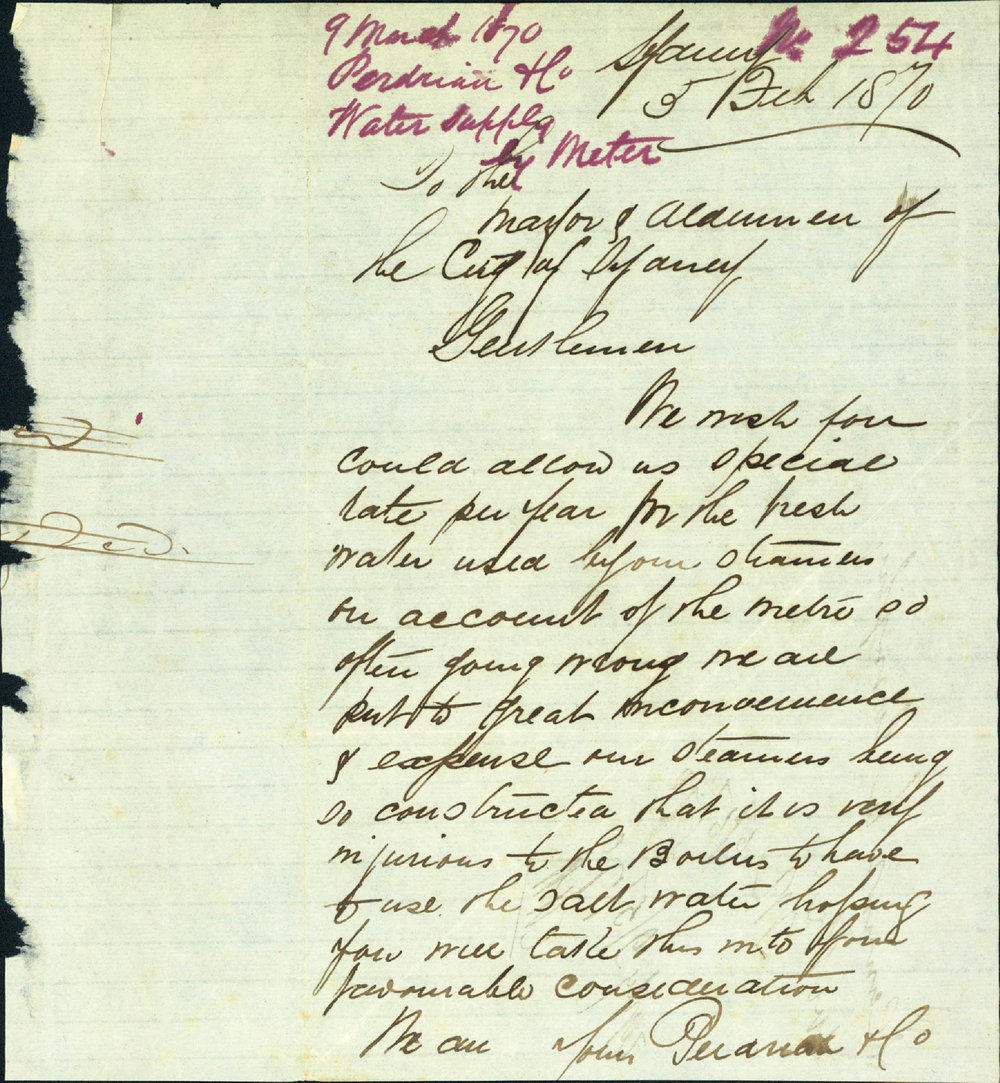 9 March 1870
Perdriau & Co
Water supply
by Meter
No 254
Sydney
5 Feb 1870
To the
Mayor & Aldermen of
the City of Sydney
Gentlemen
We wish you
could allow us special
rate per year for the fresh
water used by our steamers
on account of the metre so
often going wrong we are
put to great inconvenience
& expense our steamers being
so constructed that it is very
injurious to the Boilers to have
to use the salt water hopeing
you will take this into your
favourable consideration
We are yours Perdriau & Co